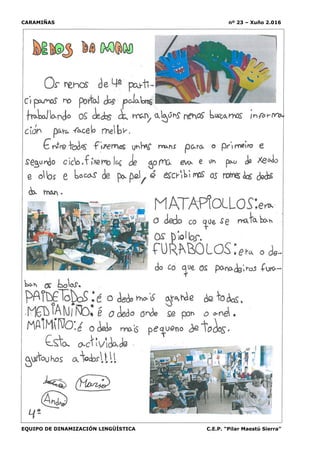 CARAMIÑAS nº 23 – Xuño 2.016
DEDOS DA MAN
Os nenos de 4º parti-
cipamos no portal das palabras
traballando os dedos da man, algúns nenos buscamos informa-
ción para facelo mellor.
Entre todos fixemos unhas mans para o primeiro e
segundo ciclo. fixemolas de goma eva e un pau de xeado
e ollos e bocas de papel, e escribimos os nomes dos dedos
da man.
MATAPIOLLOS: era
o dedo co que se mataban
os piollos.
FURABOLOS: era o de-
do co que os panadeiros fura-
ban os bolos.
PAIDETODOS: é o dedo mais grande de todos.
MEDIANIÑO: é o dedo onde se pon o anel.
MAIMIÑO: é o dedo mais pequeno de todos.
Esta actividade
gustounos a todos!!!!
Mario
André
4º
EQUIPO DE DINAMIZACIÓN LINGÜÍSTICA C.E.P. "Pilar Maestú Sierra"